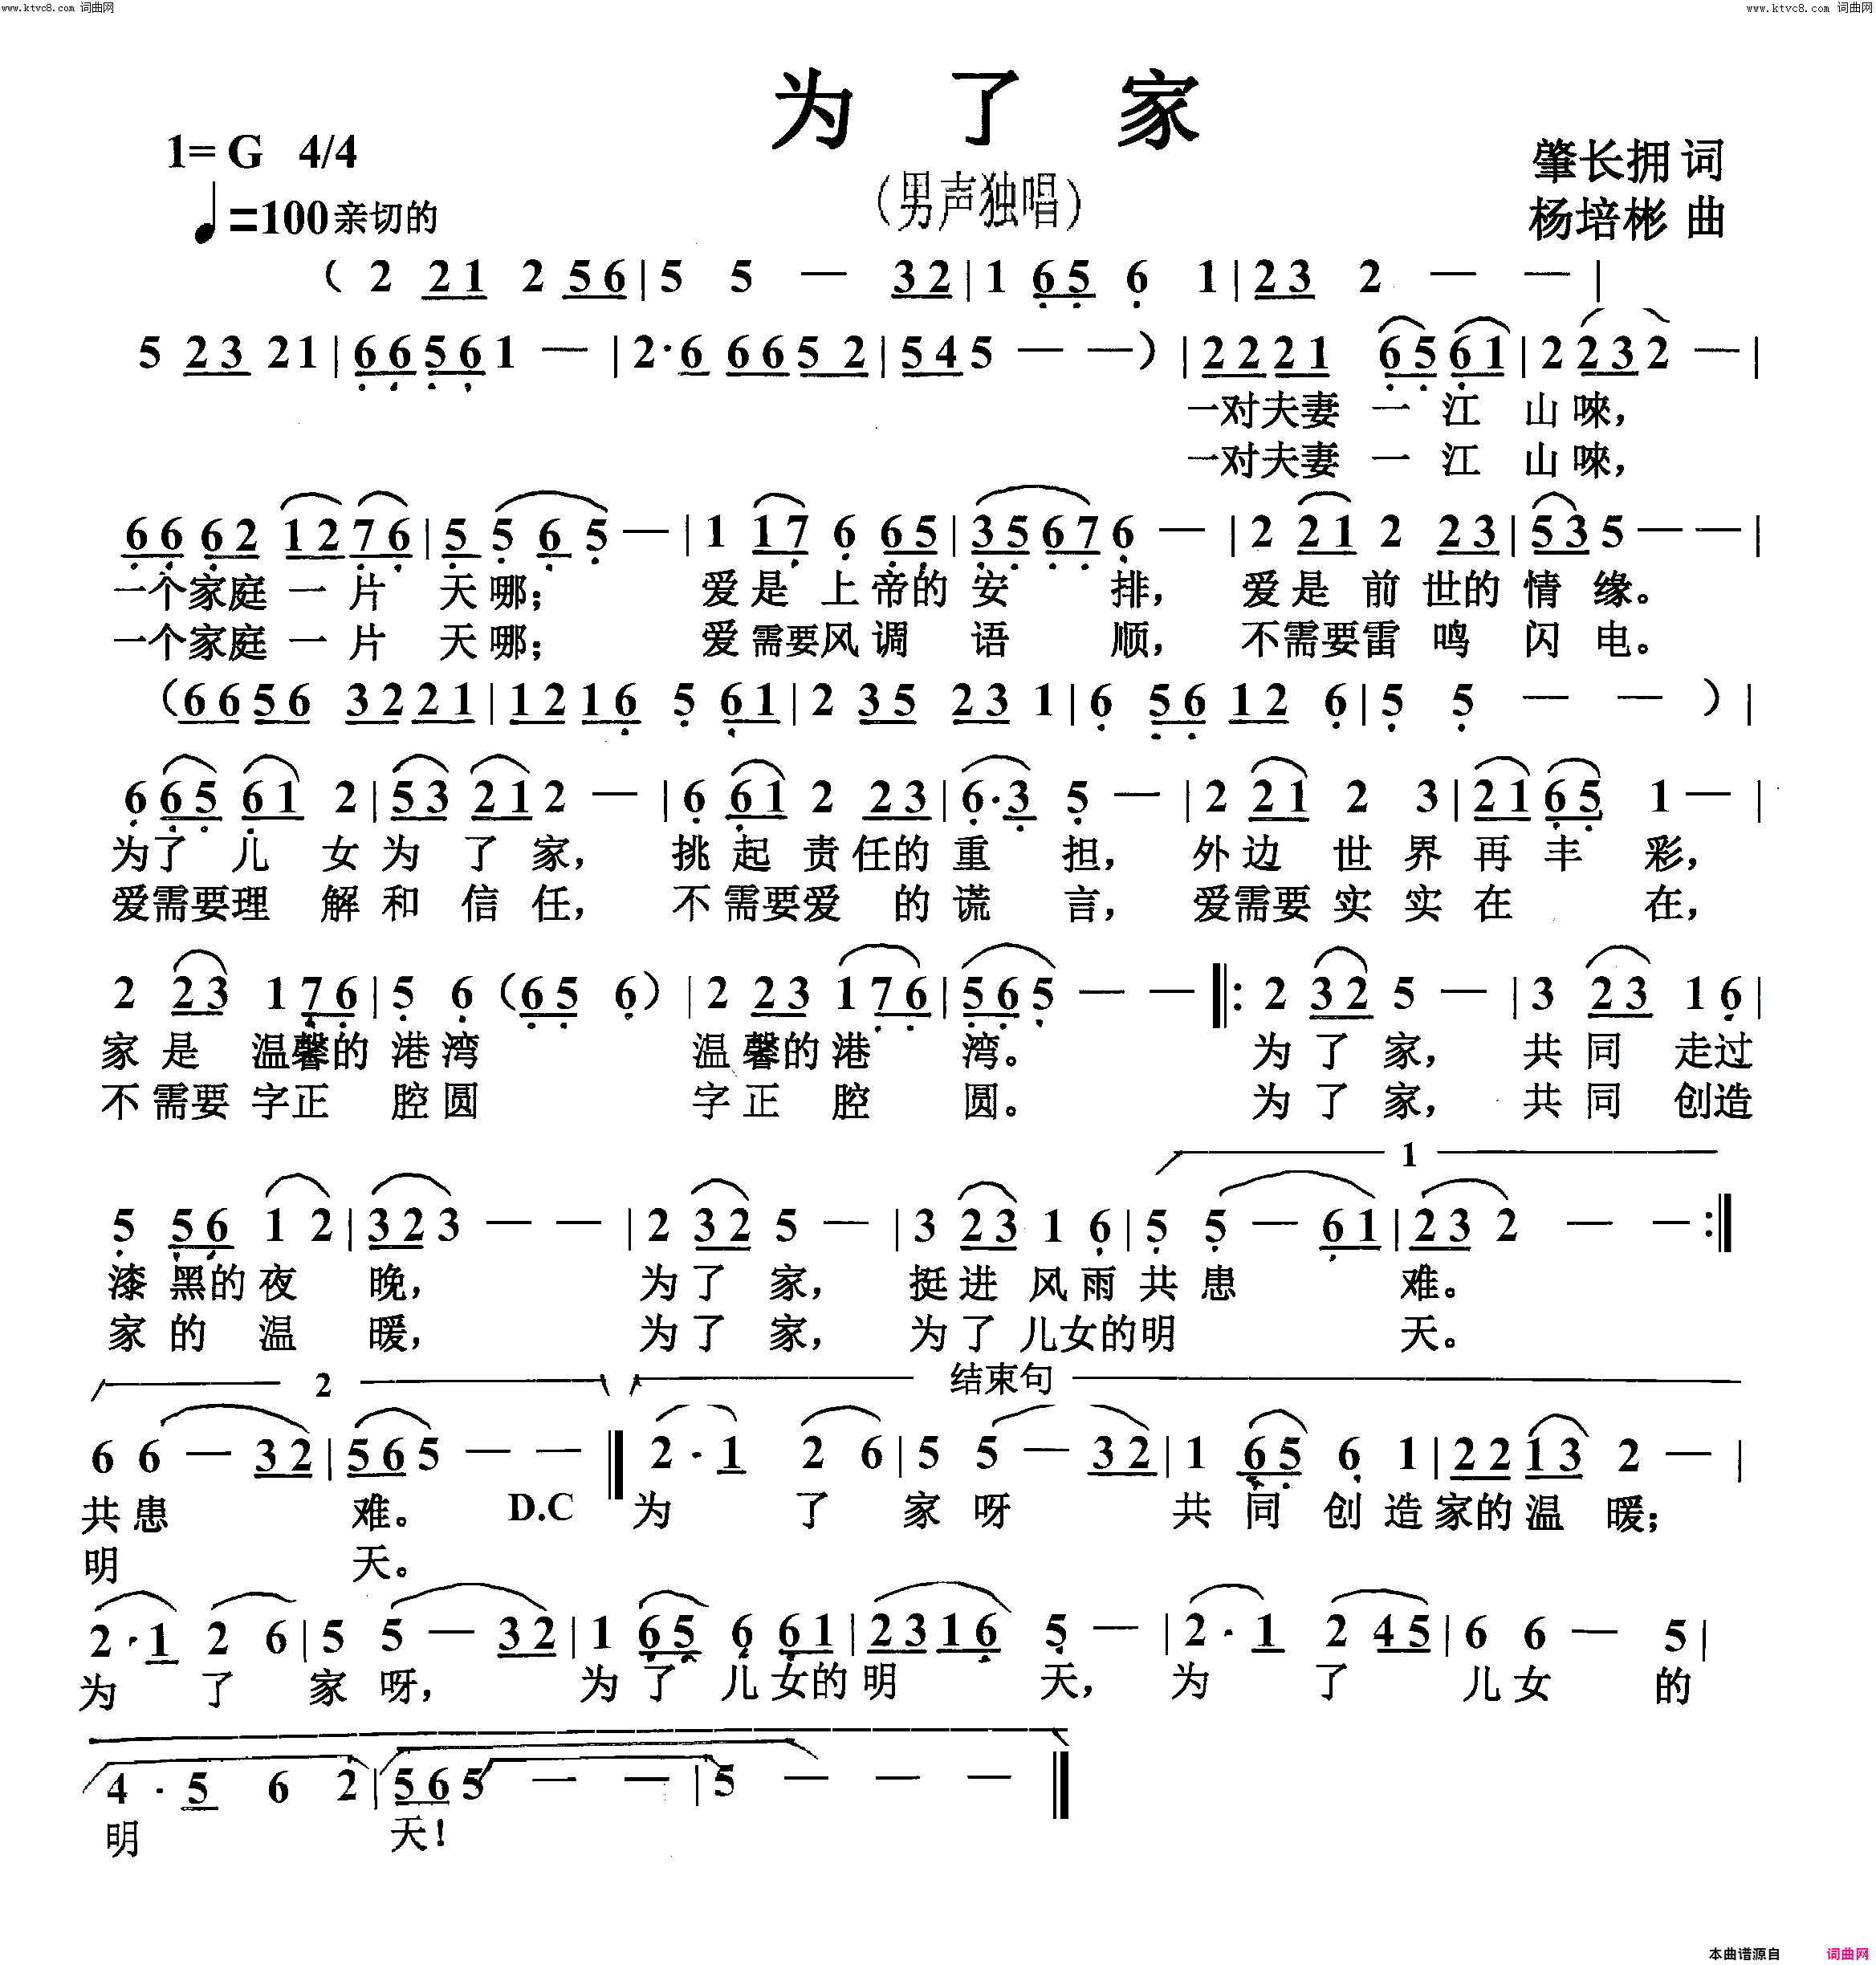 www.ktvc8.com 词曲网 www.ktvc8.com 词曲网
为了家
1= G 4/4
肇长拥 词
(男声独唱)
♩=100 亲切的
杨培彬 曲
( 2 21 2 56 | 5 5 — 32 | 1 65 6 1 | 23 2 — — |
5 23 21 | 6656 1 — | 2·6 6652 | 545 — — ) | 2221 6561 | 2232 — |
一对夫妻 一 江 山唻,
一对夫妻 一 江 山唻,
6662 1276 | 5 5 6 5 — | 1 17 6 65 | 3567 6 — | 2 21 2 23 | 53 5 — — |
一个家庭 一 片 天 哪; 爱 是 上 帝的 安 排, 爱 是 前 世的 情 缘。
一个家庭 一 片 天 哪; 爱 需要风 调 语 顺, 不需要雷 鸣 闪 电。
(6656 3221 | 1216 5 61 | 2 35 23 1 | 6 56 12 6 | 5 5 — — ) |
6 65 61 2 | 53 21 2 — | 6 61 2 23 | 6·3 5 — | 2 21 2 3 | 21 65 1 — |
为了 儿 女 为 了 家, 挑 起 责 任的 重 担, 外 边 世 界 再 丰 彩,
爱需要理 解 和 信 任, 不 需要爱 的 谎 言, 爱需要 实 实 在 在,
2 23 1 76 | 5 6 (65 6) | 2 23 176 | 56 5 — — ‖: 2 32 5 — | 3 23 1 6 |
家 是 温馨的 港 湾 温 馨的 港 湾。 为 了 家, 共 同 走过
不 需要 字正 腔 圆 字 正 腔 圆。 为 了 家, 共 同 创造
1
5 56 1 2 | 32 3 — — | 2 32 5 — | 3 23 1 6 | 5 5 — 61 | 23 2 — — :‖
漆 黑的 夜 晚, 为 了 家, 挺 进 风 雨 共 患 难。
家 的 温 暖, 为 了 家, 为 了 儿女的 明 天。
2 结束句
6 6 — 32 | 56 5 — — ‖ 2 · 1 2 6 | 5 5 — 32 | 1 65 6 1 | 22 13 2 — |
共 患 难。 D.C 为 了 家 呀 共 同 创 造 家的 温 暖;
明 天。
2 · 1 2 6 | 5 5 — 32 | 1 65 6 61 | 2316 5 — | 2 · 1 2 45 | 6 6 — 5 |
为 了 家 呀, 为 了 儿 女的 明 天, 为 了 儿 女 的
4 · 5 6 2 | 56 5 — — | 5 — — — ‖
明 天!
本曲谱源自 词曲网